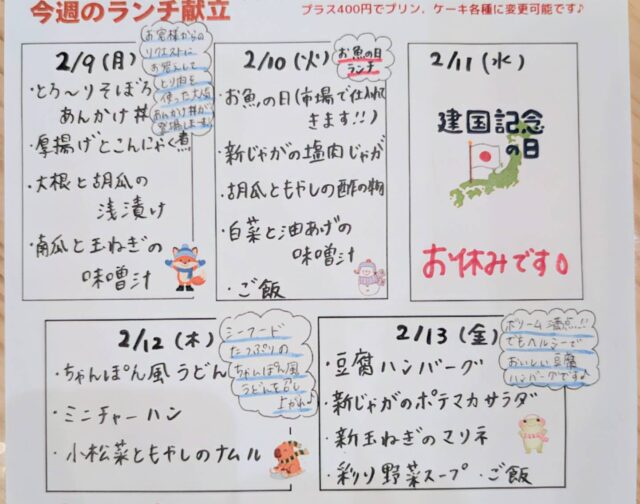 今週のランチ献立
プラス400円でプリン、ケーキ各種に変更可能です♪
2/9(月)
お客様からの
リクエストに
お答えして
とり肉を
使った大人気
あんかけ丼が
登場します!
・とろ〜りそぼろ
あんかけ丼
・厚揚げとこんにゃく煮
・大根と胡瓜の
浅漬け
・南瓜と玉ねぎの
味噌汁
2/10(火)
お魚の日
ランチ
・お魚の日(市場で仕入れて
きます!!)
・新じゃがの塩肉じゃが
・胡瓜ともやしの酢の物
・白菜と油あげの
味噌汁
・ご飯
2/11(水)
建国記念
の日
お休みです。
2/12(木)
シーフード
たっぷりの
ちゃんぽん風
うどんを召し
上がれ♪
・ちゃんぽん風うどん
・ミニチャーハン
・小松菜ともやしのナムル
2/13(金)
ボリューム満点!!!
でもヘルシーで
おいしい豆腐
ハンバーグです♪
・豆腐ハンバーグ
・新じゃがのポテマカサラダ
・新玉ねぎのマリネ
・彩り野菜スープ ・ご飯